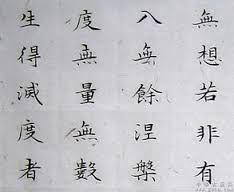 無想若非有
入無餘涅槃
度無量無數
生得滅度者